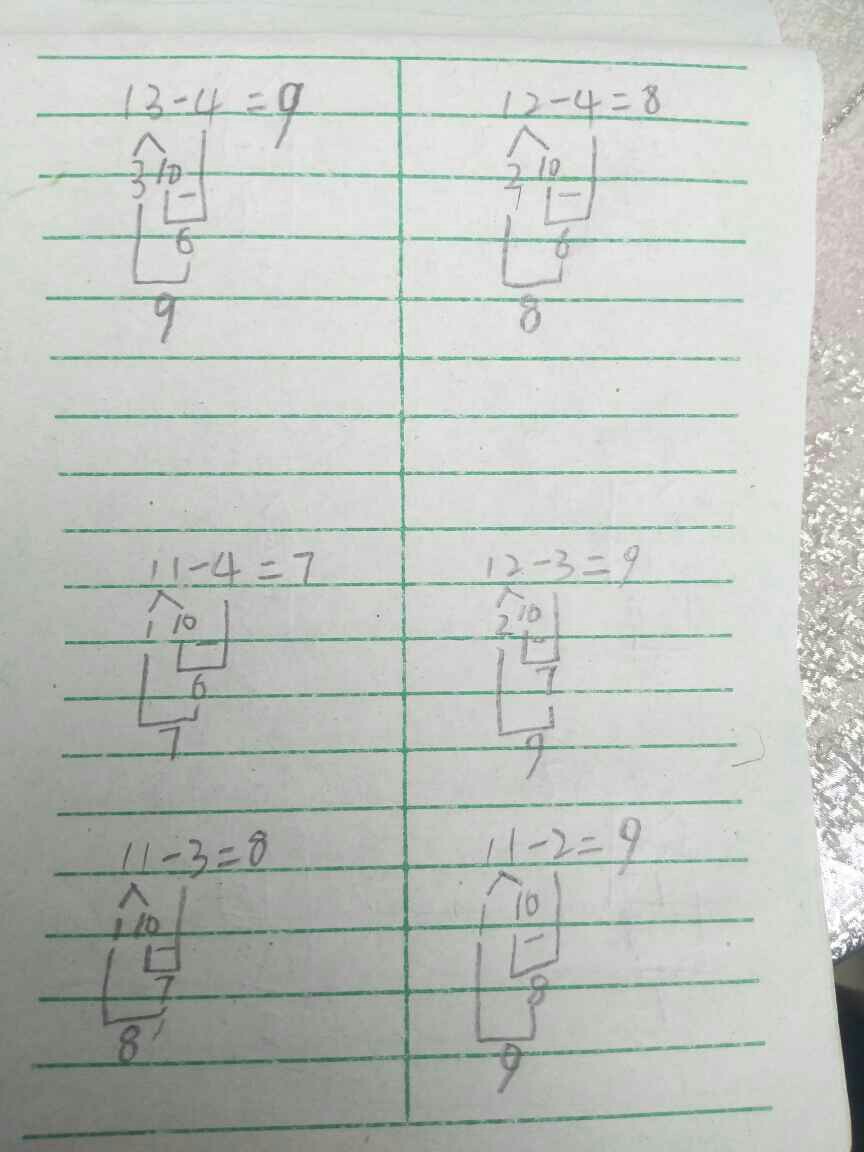 13-4=9
3 10
3
6
9
12-4=8
2 10
7
6
8
11-4=7
1 10
-
6
7
12-3=9
2 10
-
7
9
11-3=8
1 10
-
7
8
11-2=9
1 10
-
8
9